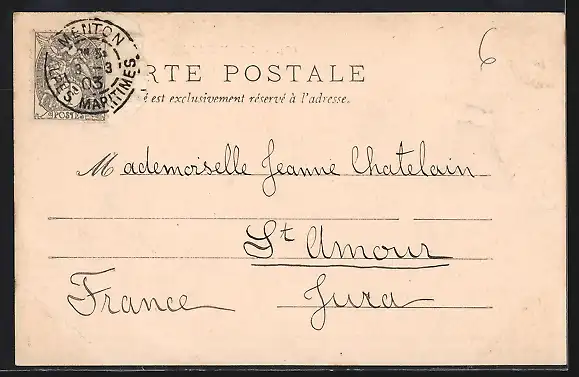 MENTON
8 -3
03
ALPES MARITIMES
POSTES
RTE POSTALE
é est exclusivement réservé à l'adresse.
6
Mademoiselle Jeanne Chatelain
St Amour
France Jura